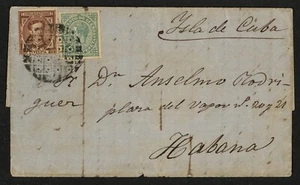 Isla de Cuba
Sr Dn Anselmo Rodri-
guez plaza del Vapor
Habana